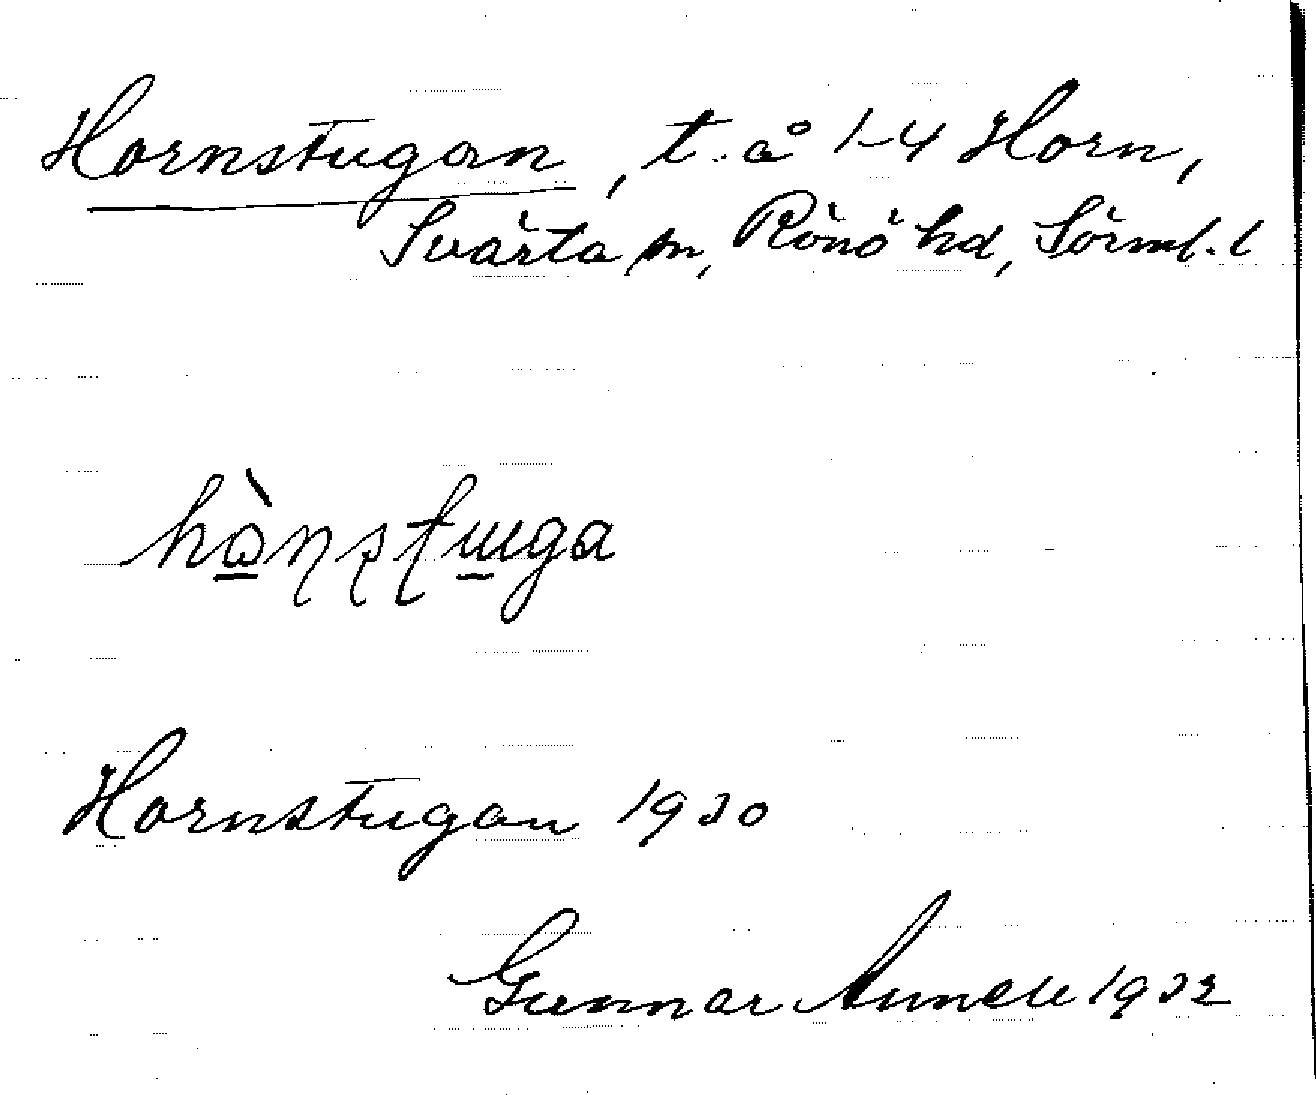 Hornstugan, t. å 1-4 Horn,
Svärta sn, Rönö hd, Sörml. l
Hornstugan 1930
Gunnar 1932